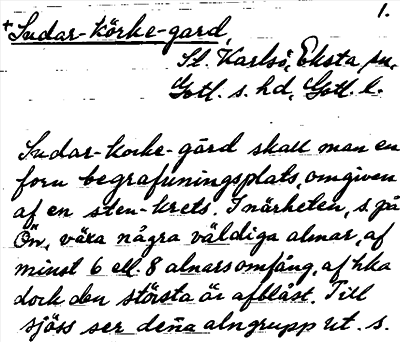 1.
+Sudar-körke-gard,
St. Karlsö, Eksta sn,
Gotl. s. hd, Gotl. l.
Sudar-korke-gård skall man en
forn begrafningsplats, omgiven
af en sten-krets. I närheten, s. på
Ön, växa några väldiga almar, af
minst 6 ell. 8 alnars omfång, af hka
dock den största är afblåst. Till
sjöss ser denna almgrupp ut s.